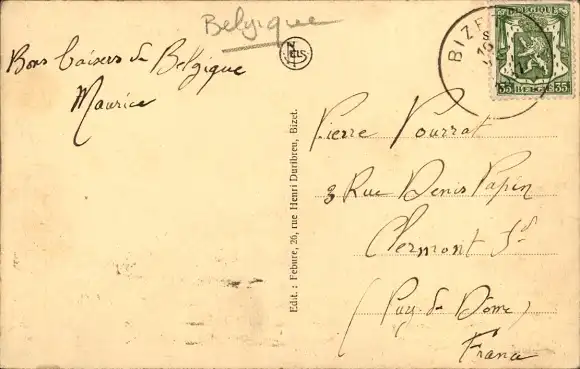 Belgique
Bons baisers de Belgique
Maurice
NELS
BIZE
BELGIQUE
35 BELGIE 35
Edit. : Febure, 26, rue Henri Duribreu, Bizet.
Pierre Pourrat
3 Rue Denis Papin
Clermont Fd
(Puy-de-Dôme)
France